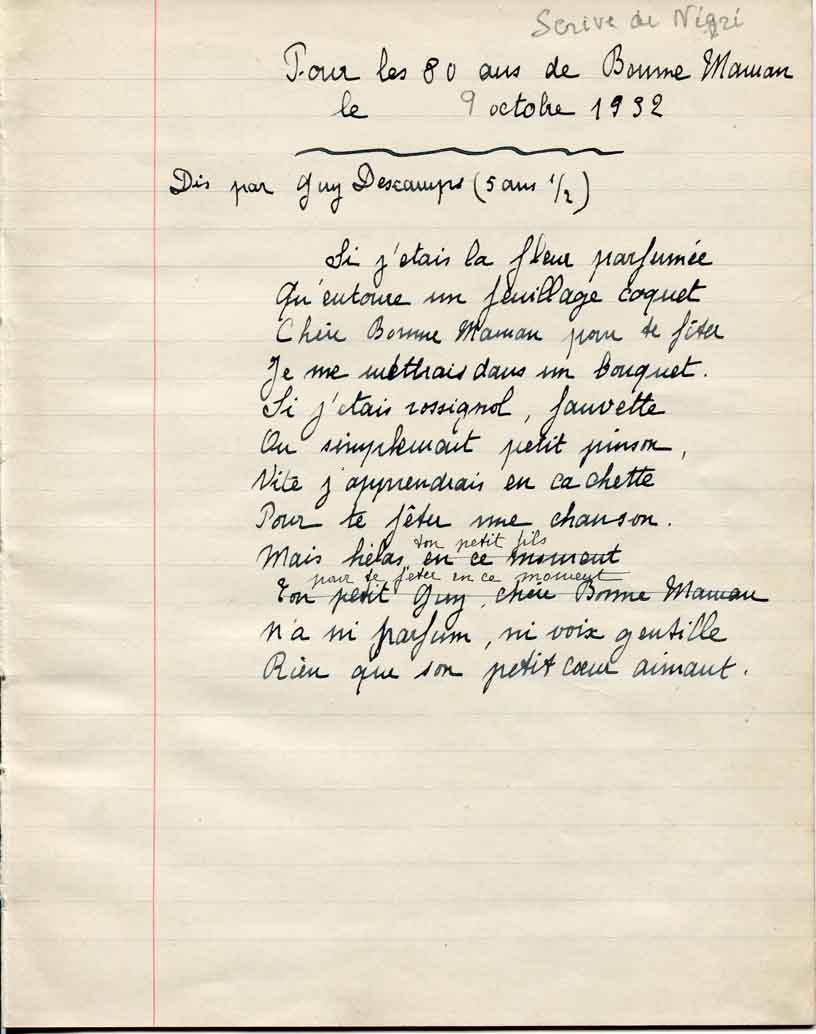 Scrive de Négri
Pour les 80 ans de Bonne Maman
le 9 octobre 1932
Dis par Guy Descamps (5 ans 1/2)
Si j'etais la fleur parfumée
Qu'entoure un feuillage coquet
Chère Bonne Maman pour te fêter
Je me mettrais dans un bouquet.
Si j'étais rossignol, fauvette
Ou simplement petit pinson,
Vite j'apprendrais en cachette
Pour te fêter une chanson.
ton petit fils
Mais hélas en ce moment
pour te fêter en ce moment
Ton petit Guy, chère Bonne Maman
N'a ni parfum, ni voix gentille
Rien que son petit cœur aimant.